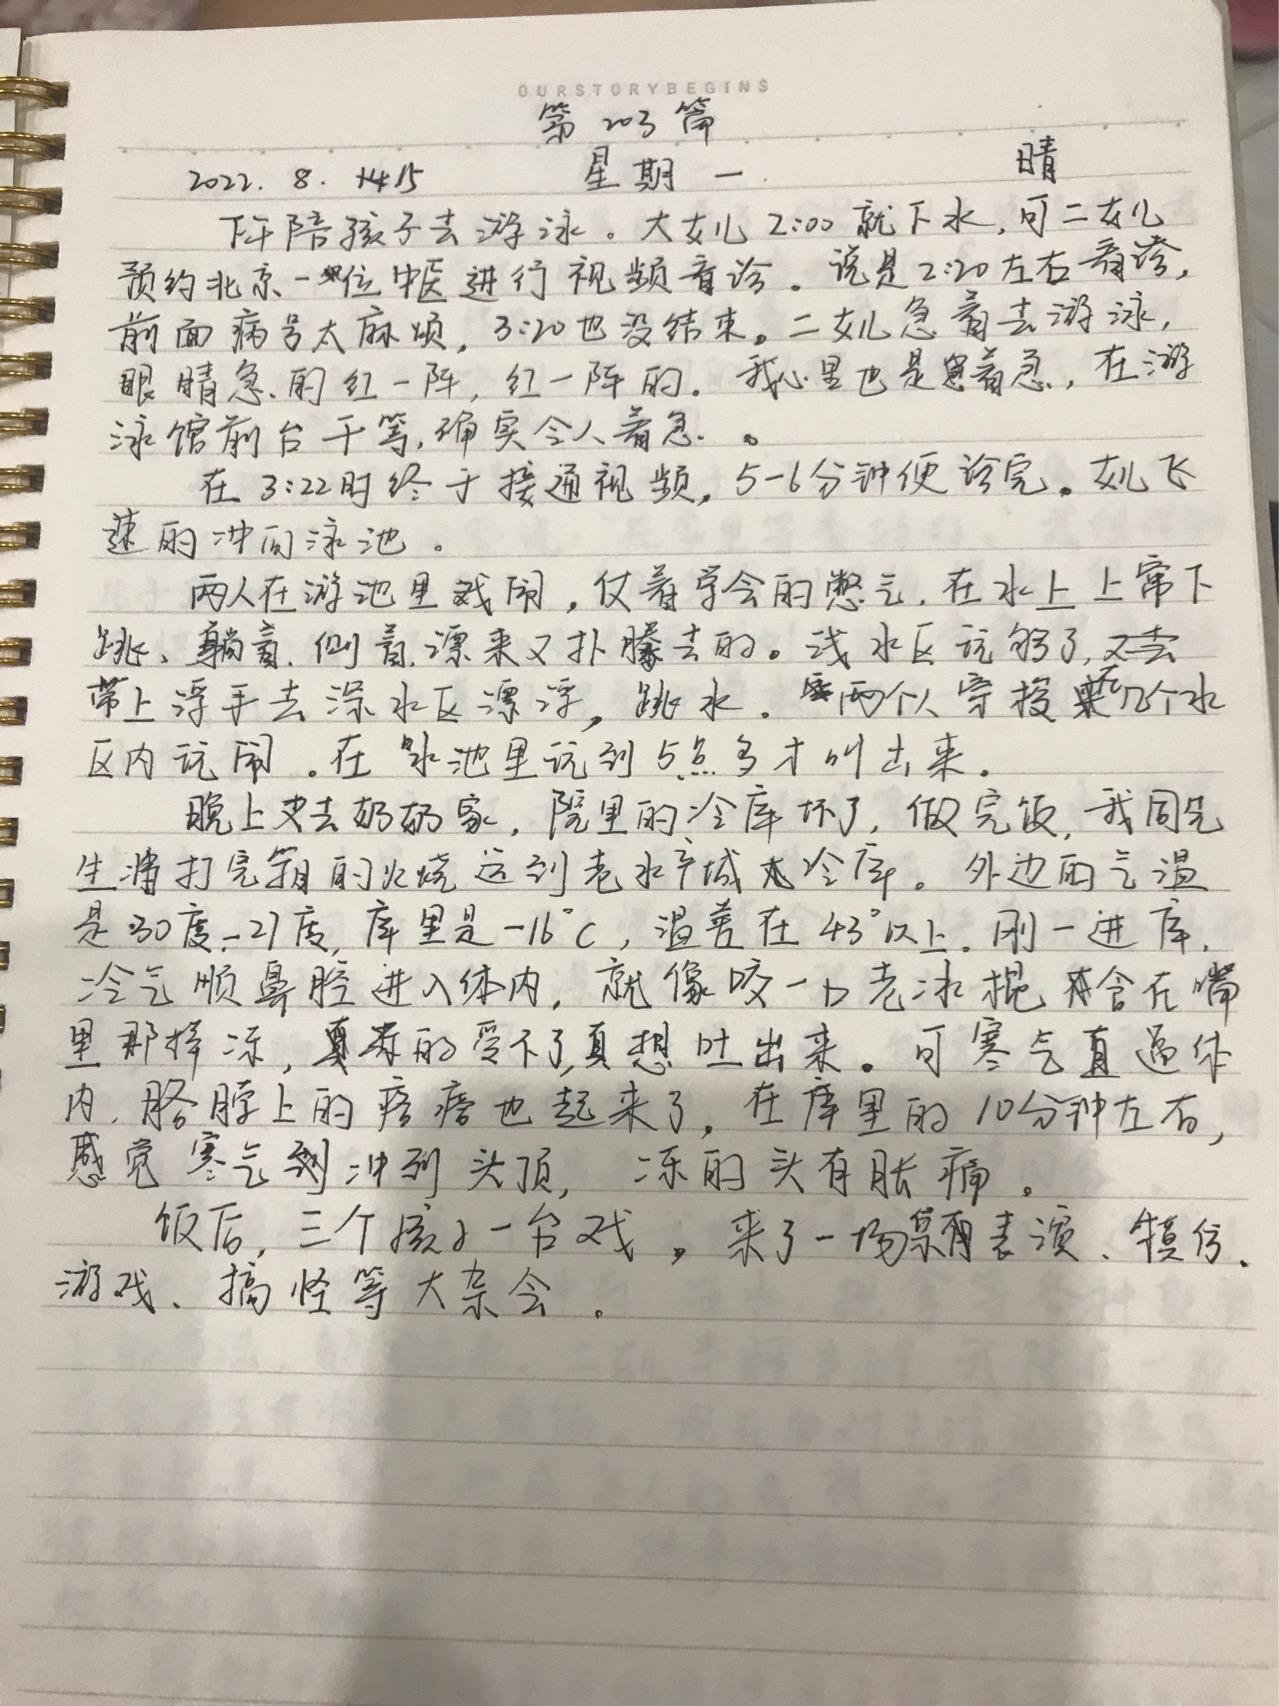 OURSTORYBEGINS
第203篇
2022.8.15 星期一 晴
下午陪孩子去游泳。大女儿2:00就下水,可二女儿
预约北京一位中医进行视频看诊。说是2:20左右看诊,
前面病号太麻烦,3:20也没结束。二女儿急着去游泳,
眼睛急的红一阵,红一阵的。我心里也是着急,在游
泳馆前台干等,确实令人着急。
在3:22时终于接通视频,5-6分钟便诊完。女儿飞
速的冲向泳池。
两人在游池里戏闹,仗着学会的憋气,在水上上窜下
跳、躺着、侧着,漂来又扑腾去的。浅水区玩够了,又去
带上浮手去深水区漂浮,跳水。两个人穿梭几个水
区内玩闹。在泳池里玩到5点多才叫出来。
晚上去奶奶家,院里的冷库坏了,做完饭,我同先
生将打完的火烧送到老水产城冷库。外边的气温
是30度-27度,库里是-16°C,温差在43°以上。刚一进库,
冷气顺鼻腔进入体内,就像咬一口老冰棍含在嘴
里那样冻,真的受不了,真想吐出来。可寒气直逼体
内,胳膊上的疙瘩也起来了,在库里的10分钟左右,
感觉寒气冲到头顶,冻的头有胀痛。
饭后,三个孩子一台戏,来了一场表演、模仿、
游戏、搞怪等大杂会。